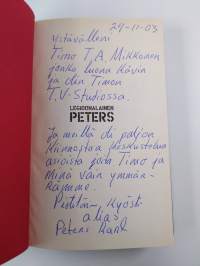 29-11-03
Ystävälleni
Timo T.A. Mikkonen
jonka luona kävin
ja olin Timon
T.V-Studiossa.
LEGIOONALAINEN
PETERS
Ja meillä oli paljon
kiinnostaa keskustelua
asioista joita Timo ja
Minä vain ymmär-
rämme.
Kyösti
alias
Peters